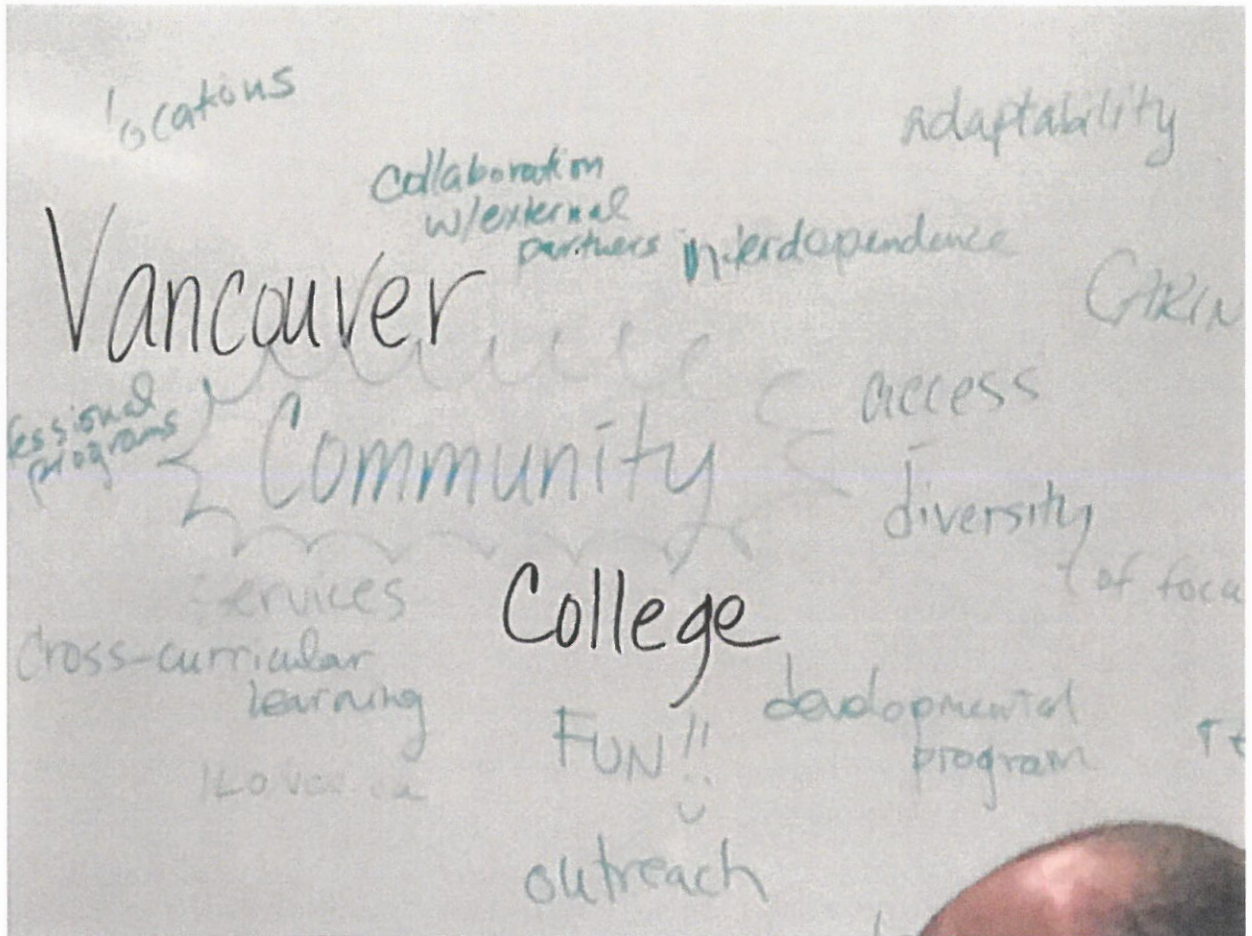 locations
adaptability
collaboration
w/external
partners
interdependence
Vancouver
access
programs
Community
diversity
services
College
cross-curricular
learning
developmental
program
FUN!!
outreach